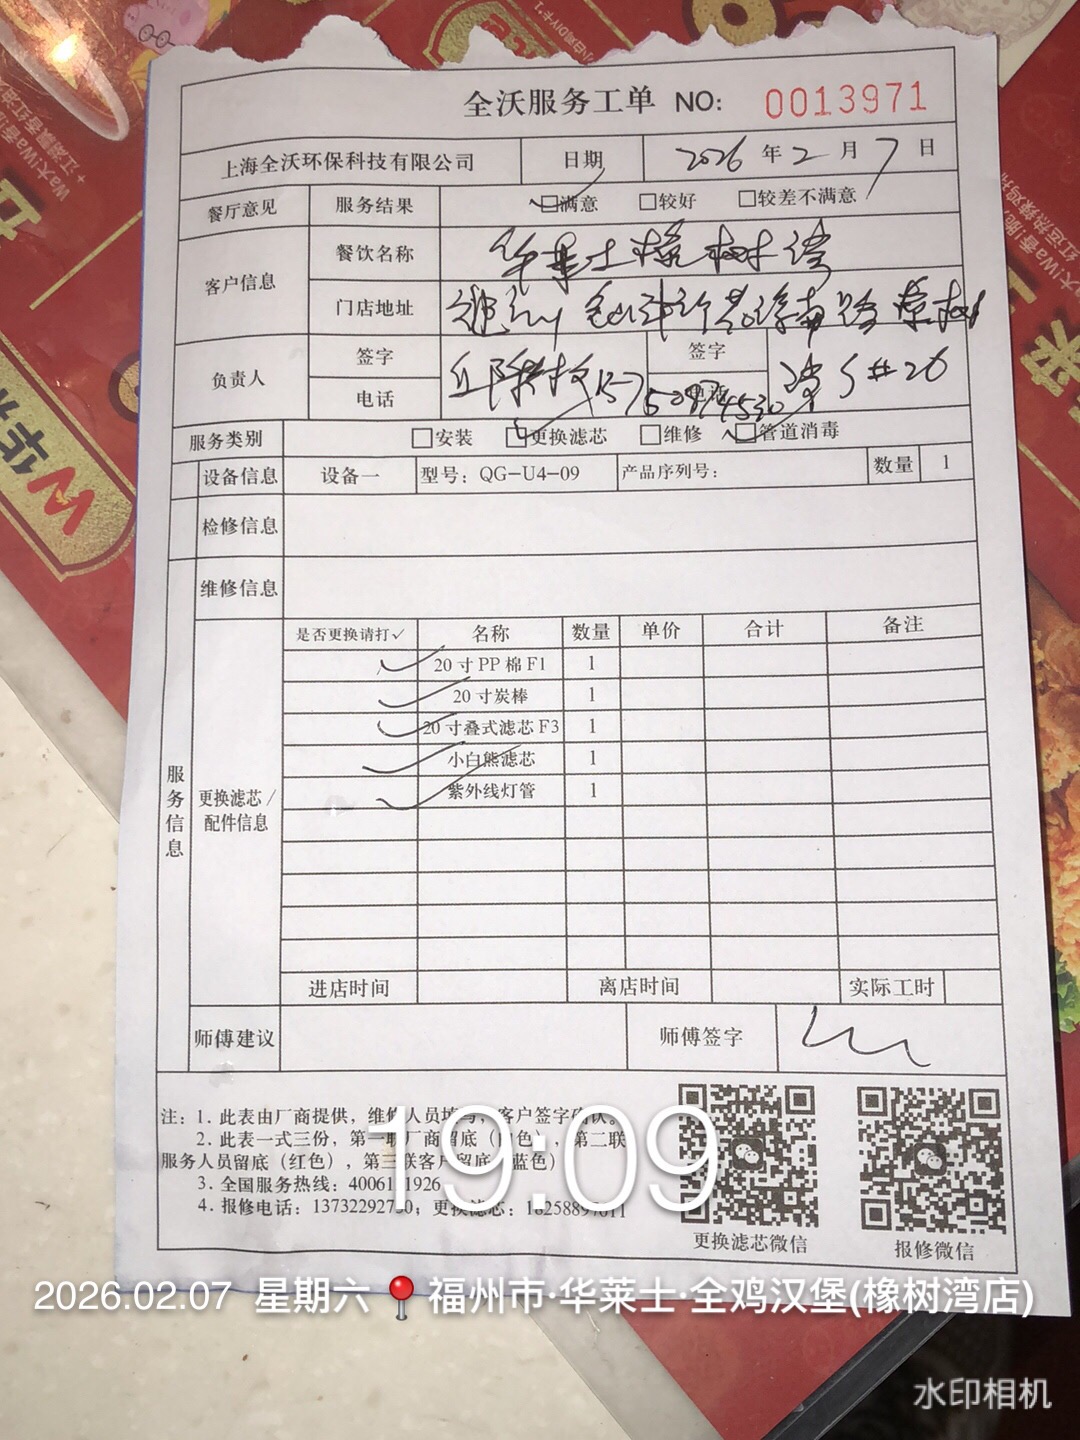 全沃服务工单 NO: 0013971
上海全沃环保科技有限公司 日期 2026 年 2 月 7 日
餐厅意见 服务结果 ☑满意 □较好 □较差不满意
客户信息 餐饮名称 华莱士橡树湾
门店地址
负责人 签字 签字
电话 电话
服务类别 □安装 ☑更换滤芯 □维修 ☑管道消毒
设备信息 设备一 型号: QG-U4-09 产品序列号: 数量 1
检修信息
维修信息
是否更换请打✓ 名称 数量 单价 合计 备注
✓ 20寸PP棉F1 1
✓ 20寸炭棒 1
✓ 20寸叠式滤芯F3 1
✓ 小白熊滤芯 1
✓ 紫外线灯管 1
服务信息
更换滤芯/
配件信息
进店时间 离店时间 实际工时
师傅建议 师傅签字
注: 1. 此表由厂商提供, 维修人员填写, 客户签字确认。
2. 此表一式三份, 第一联厂商留底 (白色), 第二联
服务人员留底 (红色), 第三联客户留底 (蓝色)
3. 全国服务热线:
4. 报修电话: 更换滤芯:
更换滤芯微信 报修微信
19:09
2026.02.07 星期六 福州市·华莱士·全鸡汉堡(橡树湾店)
水印相机